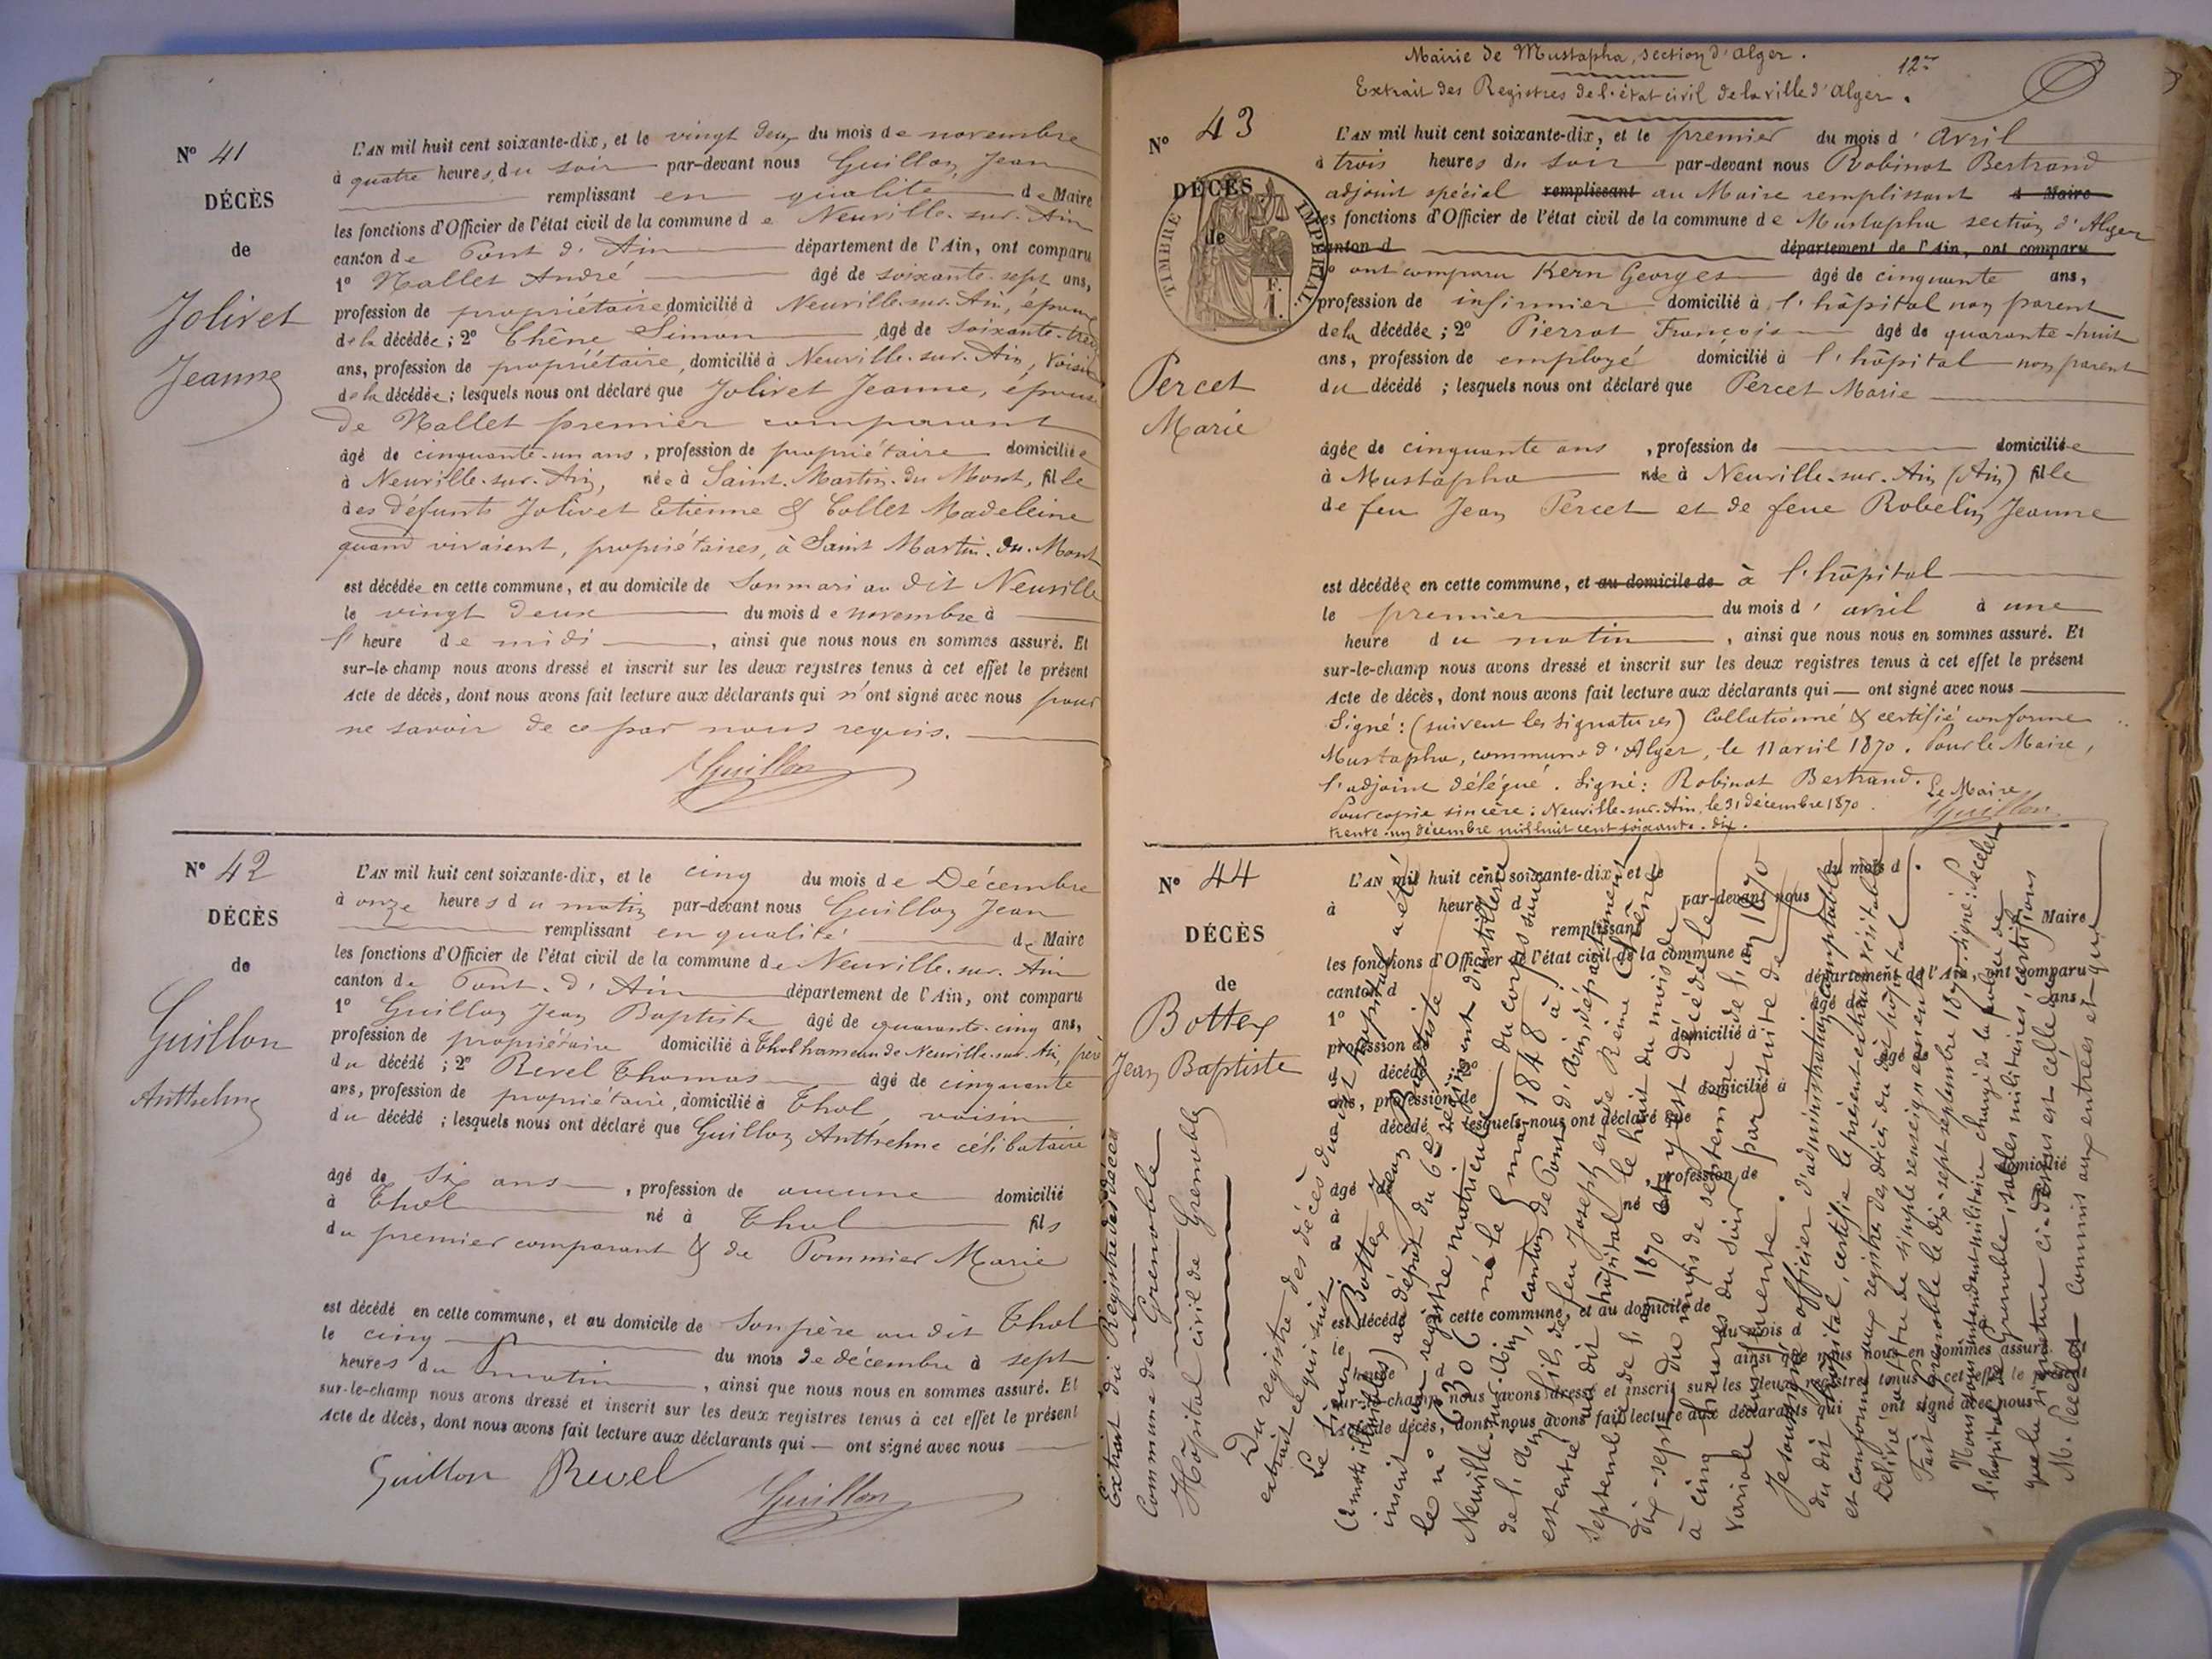 N° 41
DÉCÈS
de
Jolivet
Jeanne
L'AN mil huit cent soixante-dix, et le vingt deux du mois de novembre
à quatre heures du soir par-devant nous Guillon Jean
remplissant en qualité de Maire
les fonctions d'Officier de l'état civil de la commune de Neuville-sur-Ain
canton de Pont d'Ain département de l'Ain, ont comparu
1° Nallet André âgé de soixante-sept ans,
profession de propriétaire domicilié à Neuville-sur-Ain, epoux
de la décédée ; 2° Chêne Simon âgé de soixante-trei
ans, profession de propriétaire, domicilié à Neuville-sur-Ain, voisin
de la décédée ; lesquels nous ont déclaré que Jolivet Jeanne, épouse
de Nallet premier comparant
âgé de cinquante-un ans, profession de propriétaire domiciliée
à Neuville-sur-Ain, née à Saint-Martin-du-Mont, fille
des défunts Jolivet Etienne & Collet Madeleine
quand vivaient, propriétaires, à Saint Martin-du-Mont
est décédée en cette commune, et au domicile de Son mari au dit Neuville
le vingt deux du mois de novembre à
l'heure de midi, ainsi que nous nous en sommes assuré. Et
sur-le-champ nous avons dressé et inscrit sur les deux registres tenus à cet effet le présent
Acte de décès, dont nous avons fait lecture aux déclarants qui n'ont signé avec nous pour
ne savoir de ce par nous requis.
Guillon
N° 42
DÉCÈS
de
Guillon
Anthelme
L'AN mil huit cent soixante-dix, et le cinq du mois de Décembre
à onze heures du matin par-devant nous Guillon Jean
remplissant en qualité de Maire
les fonctions d'Officier de l'état civil de la commune de Neuville-sur-Ain
canton de Pont-d'Ain département de l'Ain, ont comparu
1° Guillon Jean Baptiste âgé de quarante-cinq ans,
profession de propriétaire domicilié à Thol hameau de Neuville-sur-Ain, père
du décédé ; 2° Revel Thomas âgé de cinquante
ans, profession de propriétaire, domicilié à Thol, voisin
du décédé ; lesquels nous ont déclaré que Guillon Anthelme célibataire
âgé de six ans, profession de aucune domicilié
à Thol né à Thol fils
du premier comparant & de Pommier Marie
est décédé en cette commune, et au domicile de Son père au dit Thol
le cinq du mois de décembre à sept
heures du matin, ainsi que nous nous en sommes assuré. Et
sur-le-champ nous avons dressé et inscrit sur les deux registres tenus à cet effet le présent
Acte de décès, dont nous avons fait lecture aux déclarants qui — ont signé avec nous
Guillon Revel
Guillon
Mairie de Mustapha, section d'Alger.
12
Extrait des Registres de l'état civil de la ville d'Alger.
N° 43
DÉCÈS
de
TIMBRE IMPÉRIAL
Percet
Marie
L'AN mil huit cent soixante-dix, et le premier du mois d'Avril
à trois heures du soir par-devant nous Robinot Bertrand
adjoint spécial remplissant au Maire remplissant d Maire
les fonctions d'Officier de l'état civil de la commune de Mustapha section d'Alger
canton d département de l'Ain, ont comparu
1° ont comparu Kern Georges âgé de cinquante ans,
profession de infirmier domicilié à l'hôpital non parent
de la décédée ; 2° Pierrot François âgé de quarante-huit
ans, profession de employé domicilié à l'hôpital non parent
du décédé ; lesquels nous ont déclaré que Percet Marie
âgée de cinquante ans, profession de domiciliée
à Mustapha née à Neuville-sur-Ain (Ain) fille
de feu Jean Percet et de feue Robelin Jeanne
est décédée en cette commune, et au domicile de à l'hôpital
le premier du mois d'avril à une
heure du matin, ainsi que nous nous en sommes assuré. Et
sur-le-champ nous avons dressé et inscrit sur les deux registres tenus à cet effet le présent
Acte de décès, dont nous avons fait lecture aux déclarants qui — ont signé avec nous
Signé : (suivent les signatures) Collationné & certifié conforme
Mustapha, commune d'Alger, le 11 avril 1870. Pour le Maire,
l'adjoint délégué. Signé : Robinot Bertrand.
Pour copie sincère : Neuville-sur-Ain, le 31 décembre 1870. Le Maire
trente-un décembre mil huit cent soixante-dix. Guillon
N° 44
DÉCÈS
de
Bottex
Jean Baptiste
L'AN mil huit cent soixante-dix, et le du mois d
à heure d par-devant nous
remplissant Maire
les fonctions d'Officier de l'état civil de la commune
canton d département de l'Ain, ont comparu
1° âgé de ans
profession de domicilié à
d décédé 2° âgé de
ans, profession de domicilié à
décédé lesquels nous ont déclaré que
âgé profession de domicilié
à né
est décédé cette commune, et au domicile de
le du mois d
heure à ainsi que nous nous en sommes assuré. Et
sur-le-champ nous avons dressé et inscrit sur les deux registres tenus à cet effet le présent
Acte de décès, dont nous avons fait lecture aux déclarants qui ont signé avec nous
Extrait du Registre des décès
Commune de Grenoble
Hôpital civil de Grenoble
Du registre des décès du dit hôpital a été
extrait ce qui suit :
Le sieur Bottex Jean Baptiste
inscrit au registre matricule du corps sous
le n° 6306 né le 8 mai 1848 à
Neuville-sur-Ain, canton de Pont d'Ain, département
de l'Ain, fils de feu Joseph et de
est entré au dit hôpital le huit du mois de
Septembre de l'an 1870 et y est décédé le
dix-sept du mois de septembre de l'an 1870
à cinq heures du soir par suite de
variole confluente.
Je soussigné officier d'administration comptable
du dit hôpital, certifie le présent extrait véritable
et conforme aux registres des décès du dit hôpital.
Délivré à titre de simple renseignement
Fait à Grenoble le dix-sept septembre 1870. Signé :
Nous sous-intendant militaire chargé de la police de
l'hôpital de Grenoble, salles militaires, certifions
que la signature ci-dessus est celle de
M. commis aux entrées et